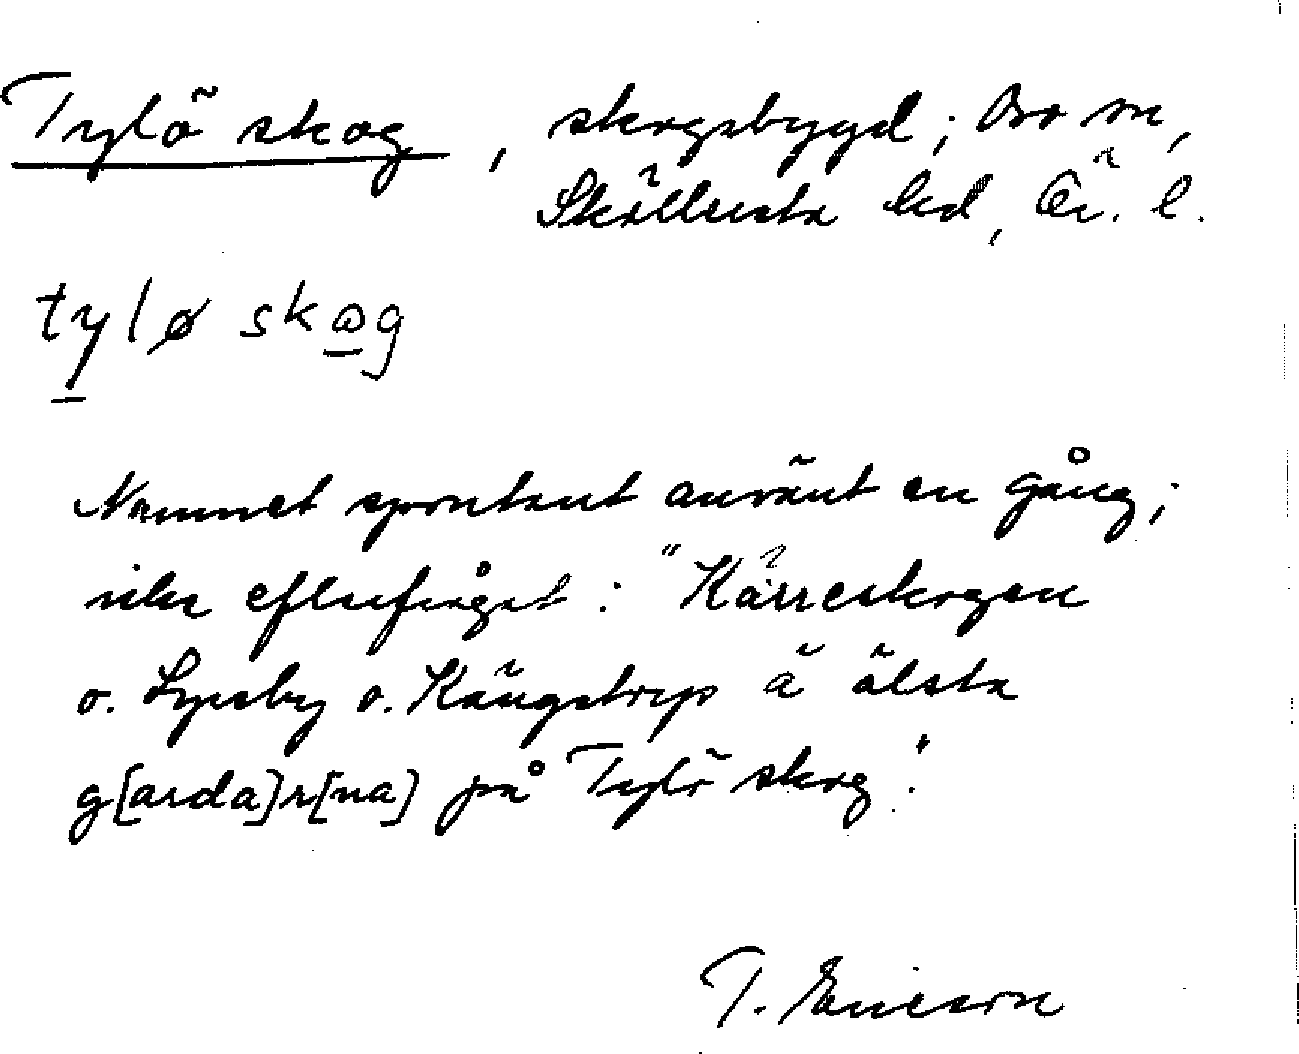 Tylö skog, skogsbygd; Bro sn,
Skyllersta hd, Ör. l.
tylø skog
Namnet spontant använt en gång;
icke efterfrågat: "Kärreskogen
o. Lyesby o. Kängstrup ä älsta
g[arda]r[na] på Tylö skog."
T. Ericson